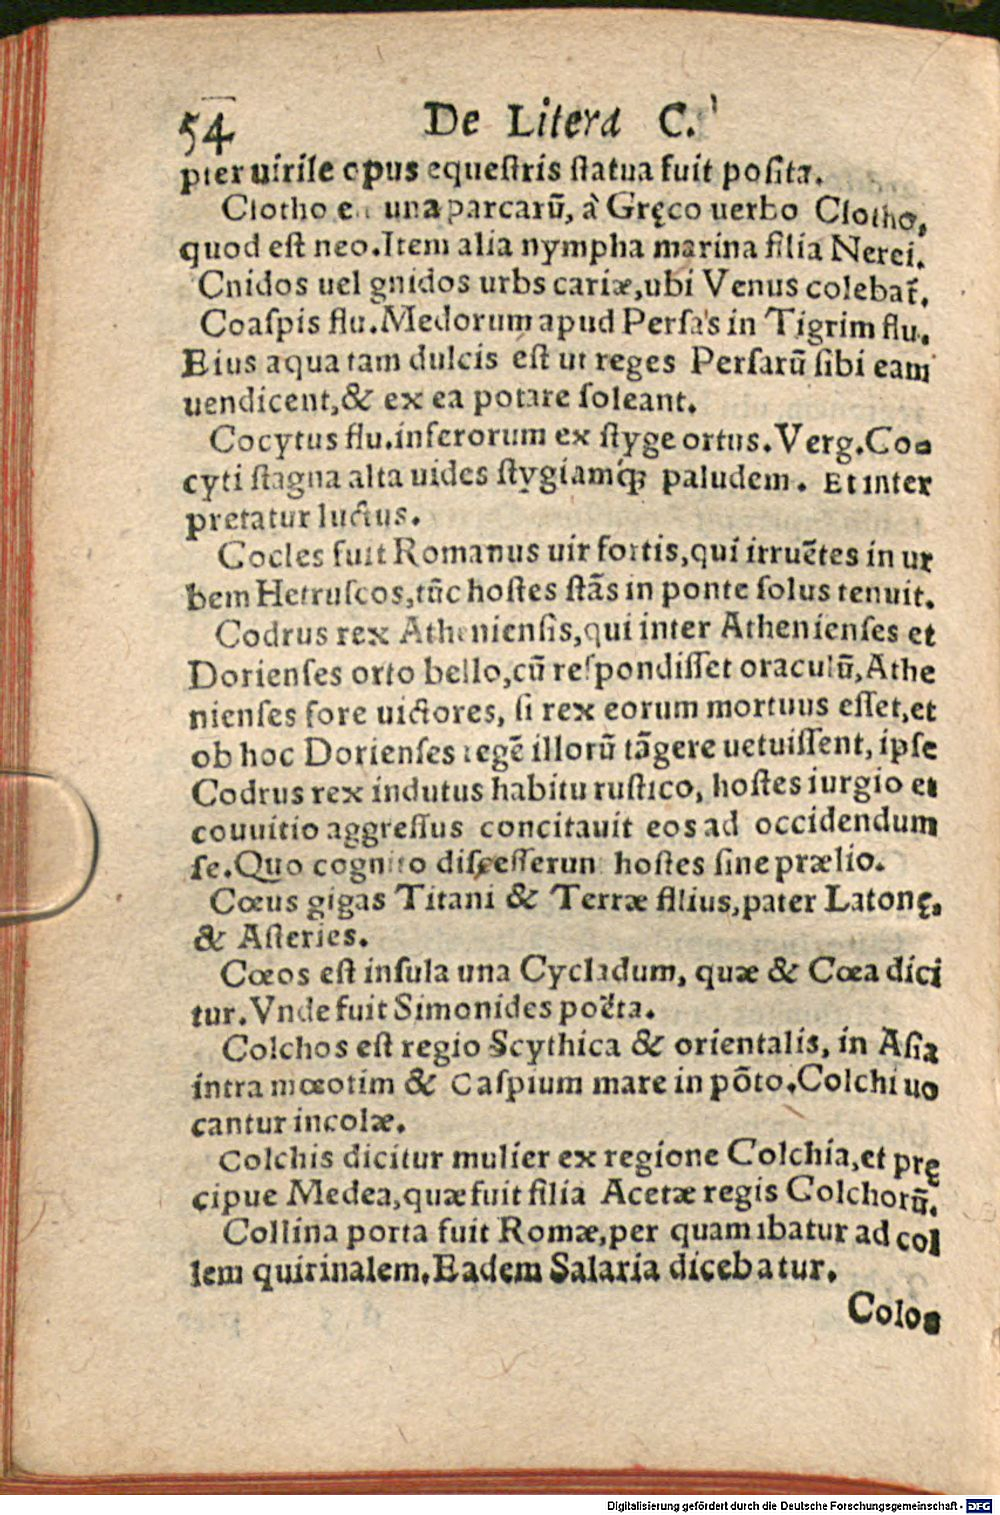 54 De Litera C.
pter uirile opus equeſtris ſtatua fuit poſita.
Clotho una parcarũ, à Gręco uerbo Clotho,
quod eſt neo. Item alia nympha marina filia Nerei.
Cnidos uel gnidos urbs cariæ, ubi Venus colebat̃.
Coaſpis flu. Medorum apud Perſas in Tigrim flu.
Eius aqua tam dulcis eſt ut reges Perſarũ ſibi eam
uendicent, & ex ea potare ſoleant.
Cocytus flu. inferorum ex ſtyge ortus. Verg. Co⸗
cyti ſtagna alta uides ſtygiamq́ꝫ paludem. Et inter
pretatur luctus.
Cocles fuit Romanus uir fortis, qui irruẽtes in ur
bem Hetruſcos, tũc hoſtes ſtãs in ponte ſolus tenuit.
Codrus rex Athenienſis, qui inter Athenienſes et
Dorienſes orto bello, cũ reſpondiſſet oraculũ, Athe
nienſes fore uictores, ſi rex eorum mortuus eſſet, et
ob hoc Dorienſes regẽ illorũ tãgere uetuiſſent, ipſe
Codrus rex indutus habitu ruſtico, hoſtes iurgio et
couuitio aggreſſus concitauit eos ad occidendum
ſe. Quo cognito diſceſſerunt hoſtes ſine prælio.
Cœus gigas Titani & Terræ filius, pater Latonę,
& Aſteries.
Cœos eſt inſula una Cycladum, quæ & Cœa dici
tur. Vnde fuit Simonides poëta.
Colchos eſt regio Scythica & orientalis, in Aſia
intra mœotim & Caſpium mare in põto. Colchi uo
cantur incolæ.
Colchis dicitur mulier ex regione Colchia, et prę
cipue Medea, quæ fuit filia Acetæ regis Colchorũ.
Collina porta fuit Romæ, per quam ibatur ad col
lem quirinalem. Eadem Salaria dicebatur.
Colo⸗
Digitalisierung gefördert durch die Deutsche Forschungsgemeinschaft - DFG